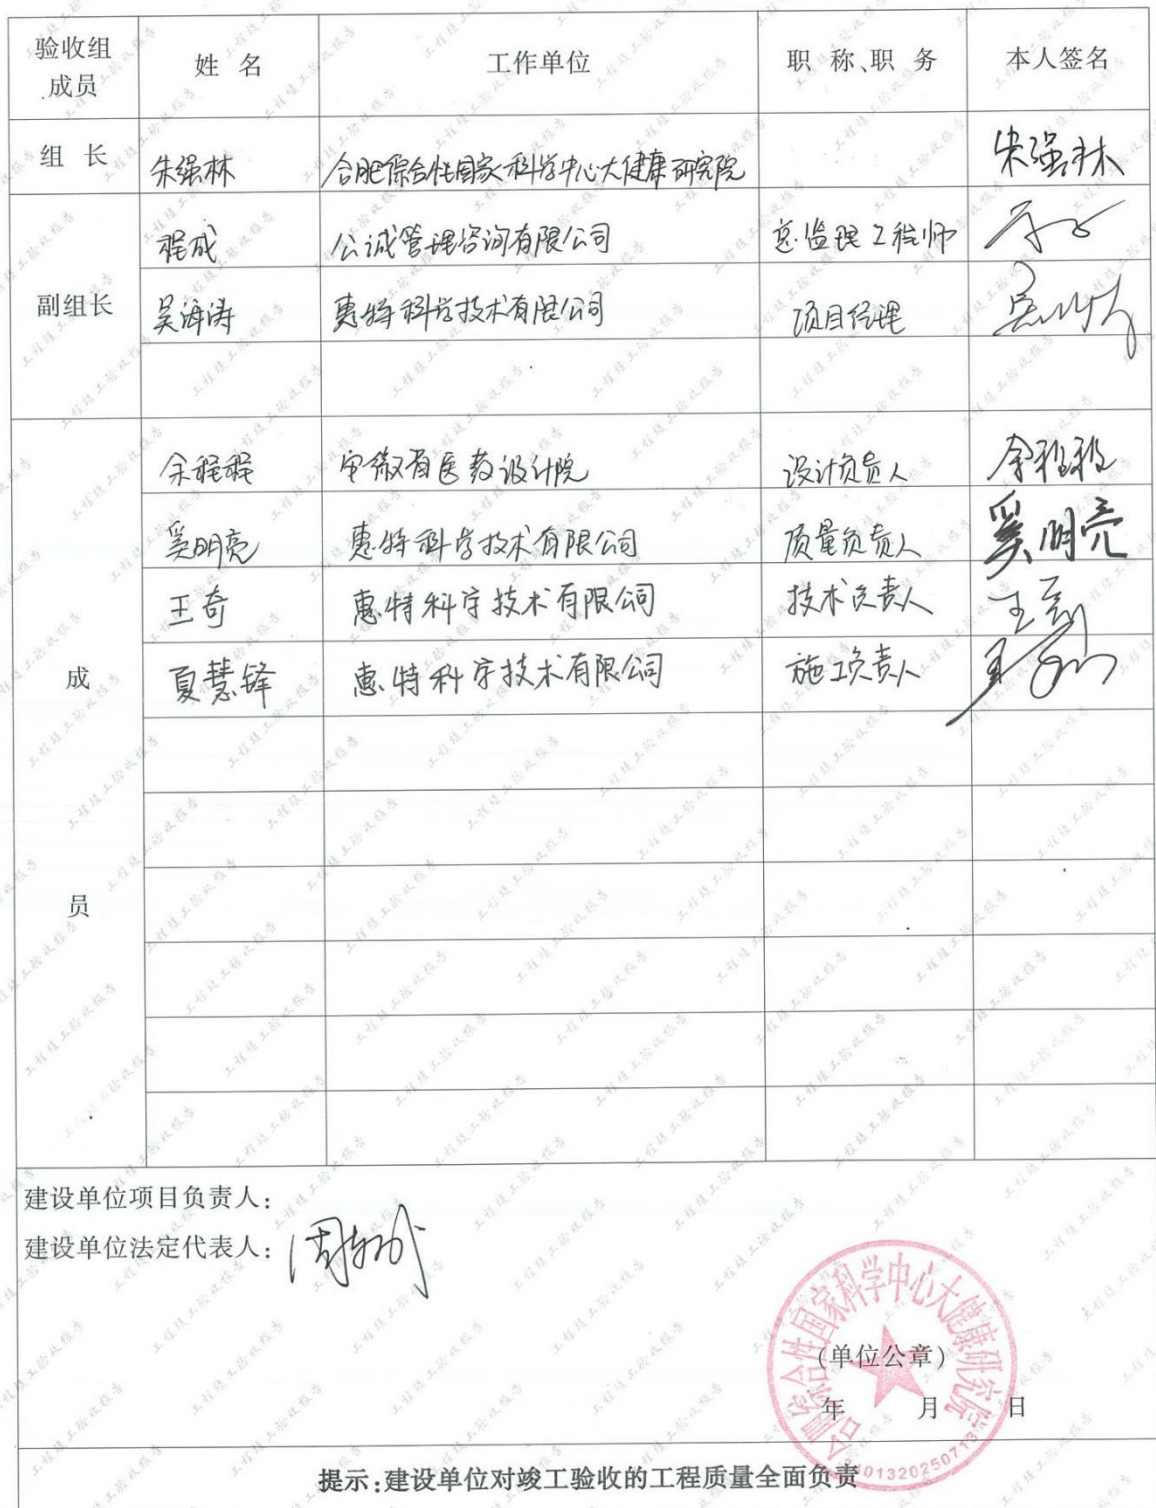 验收组成员 姓 名 工作单位 职 称、职 务 本人签名
组 长 朱强林 合肥综合性国家科学中心大健康研究院 朱强林
副组长
程成 公诚管理咨询有限公司 总监理工程师
吴海涛 惠特科学技术有限公司 项目经理
成员
余程程 安徽省医药设计院 设计负责人 余程程
奚明亮 惠特科学技术有限公司 质量负责人 奚明亮
王奇 惠特科学技术有限公司 技术负责人 王奇
夏慧锋 惠特科学技术有限公司 施工负责人
建设单位项目负责人：
建设单位法定代表人：
合肥综合性国家科学中心大健康研究院
(单位公章)
年 月 日
提示：建设单位对竣工验收的工程质量全面负责
工程竣工验收报告